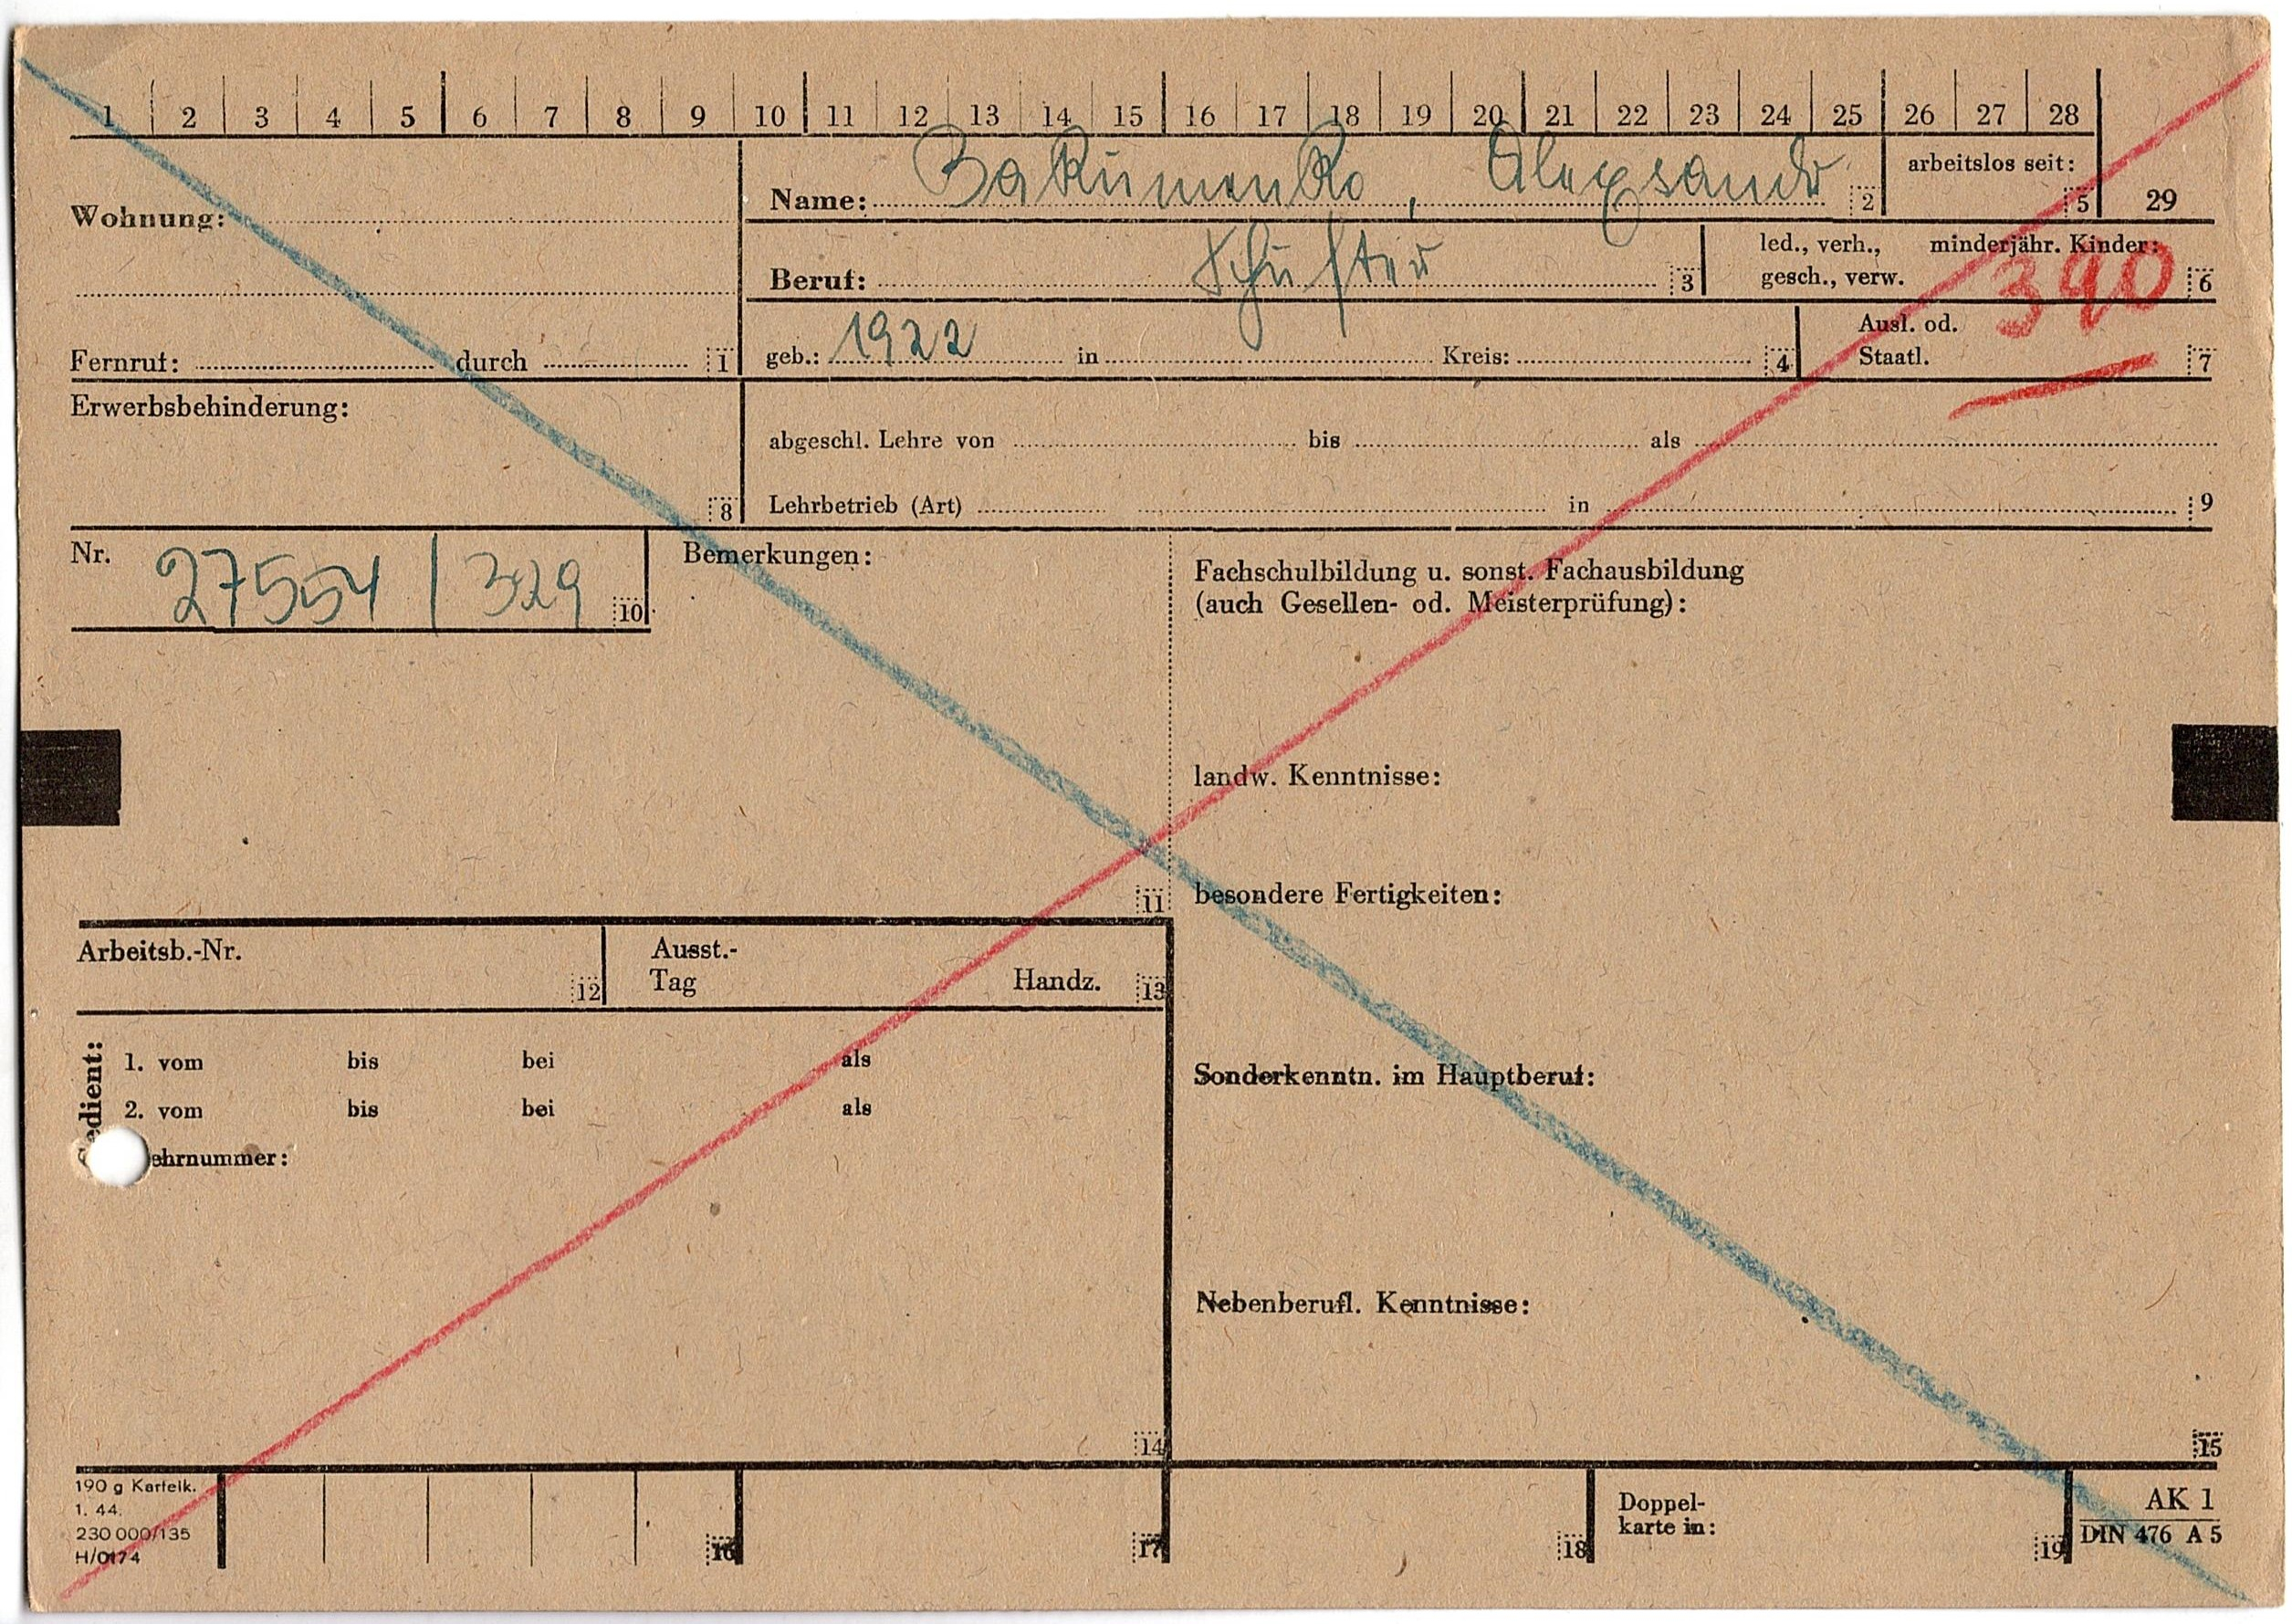 1 2 3 4 5 6 7 8 9 10 11 12 13 14 15 16 17 18 19 20 21 22 23 24 25 26 27 28
Wohnung:
Name: Bakumenko, Alexsandr 2
arbeitslos seit: 5
29
Beruf: Schuster 3
led., verh., minderjähr. Kinder:
gesch., verw. 390 6
Fernruf: durch 1
geb.: 1922 in Kreis: 4
Ausl. od.
Staatl. 7
Erwerbsbehinderung:
8
abgeschl. Lehre von bis als
Lehrbetrieb (Art) in 9
Nr. 27554 / 329 10
Bemerkungen:
11
Fachschulbildung u. sonst. Fachausbildung
(auch Gesellen- od. Meisterprüfung):
landw. Kenntnisse:
besondere Fertigkeiten:
Arbeitsb.-Nr. 12
Ausst.-
Tag Handz. 13
edient:
1. vom bis bei als
2. vom bis bei als
ehrnummer:
14
Sonderkenntn. im Hauptberuf:
Nebenberufl. Kenntnisse:
15
190 g Karteik.
1. 44.
230 000/135
H/0174
16
17
18
Doppel-
karte in:
19
AK 1
DIN 476 A 5